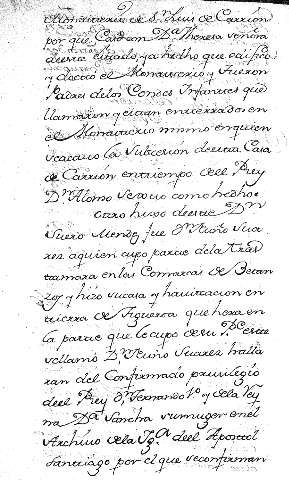 el Monasterio de Sn. Luis de Carrión
por que Casó con Da. Theresa señora
de este estado, ya he dho que edificó
y docto el Monasterio, y fueron
Padres de los Condes Infantes que
llamaron y estan enterrados en
el Monasterio mismo en quien
se acavo la Subcesion de esta Casa
de Carrión en tiempo de el Rey
Dn. Alonso sexto como he dho.
Otro hijo de este Dn
Suero Mendez fue Dn. Nuño Sua
res a quien cupo parte de la tras
tamara en las Comarcas de Betan
zos y hizo su casa y havitacion en
tierra de Figueroa que hera en
la parte que le cupo de su Pe. este
se llamó Dn. Nuño Suares halla
ran del Confirmado privilegio
de el Rey Dn. Fernando 1o. y de la Rey
na Da. Sancha su muger en el
Archivo de la Ygª. de el Apostol
Santiago por el que se confirman